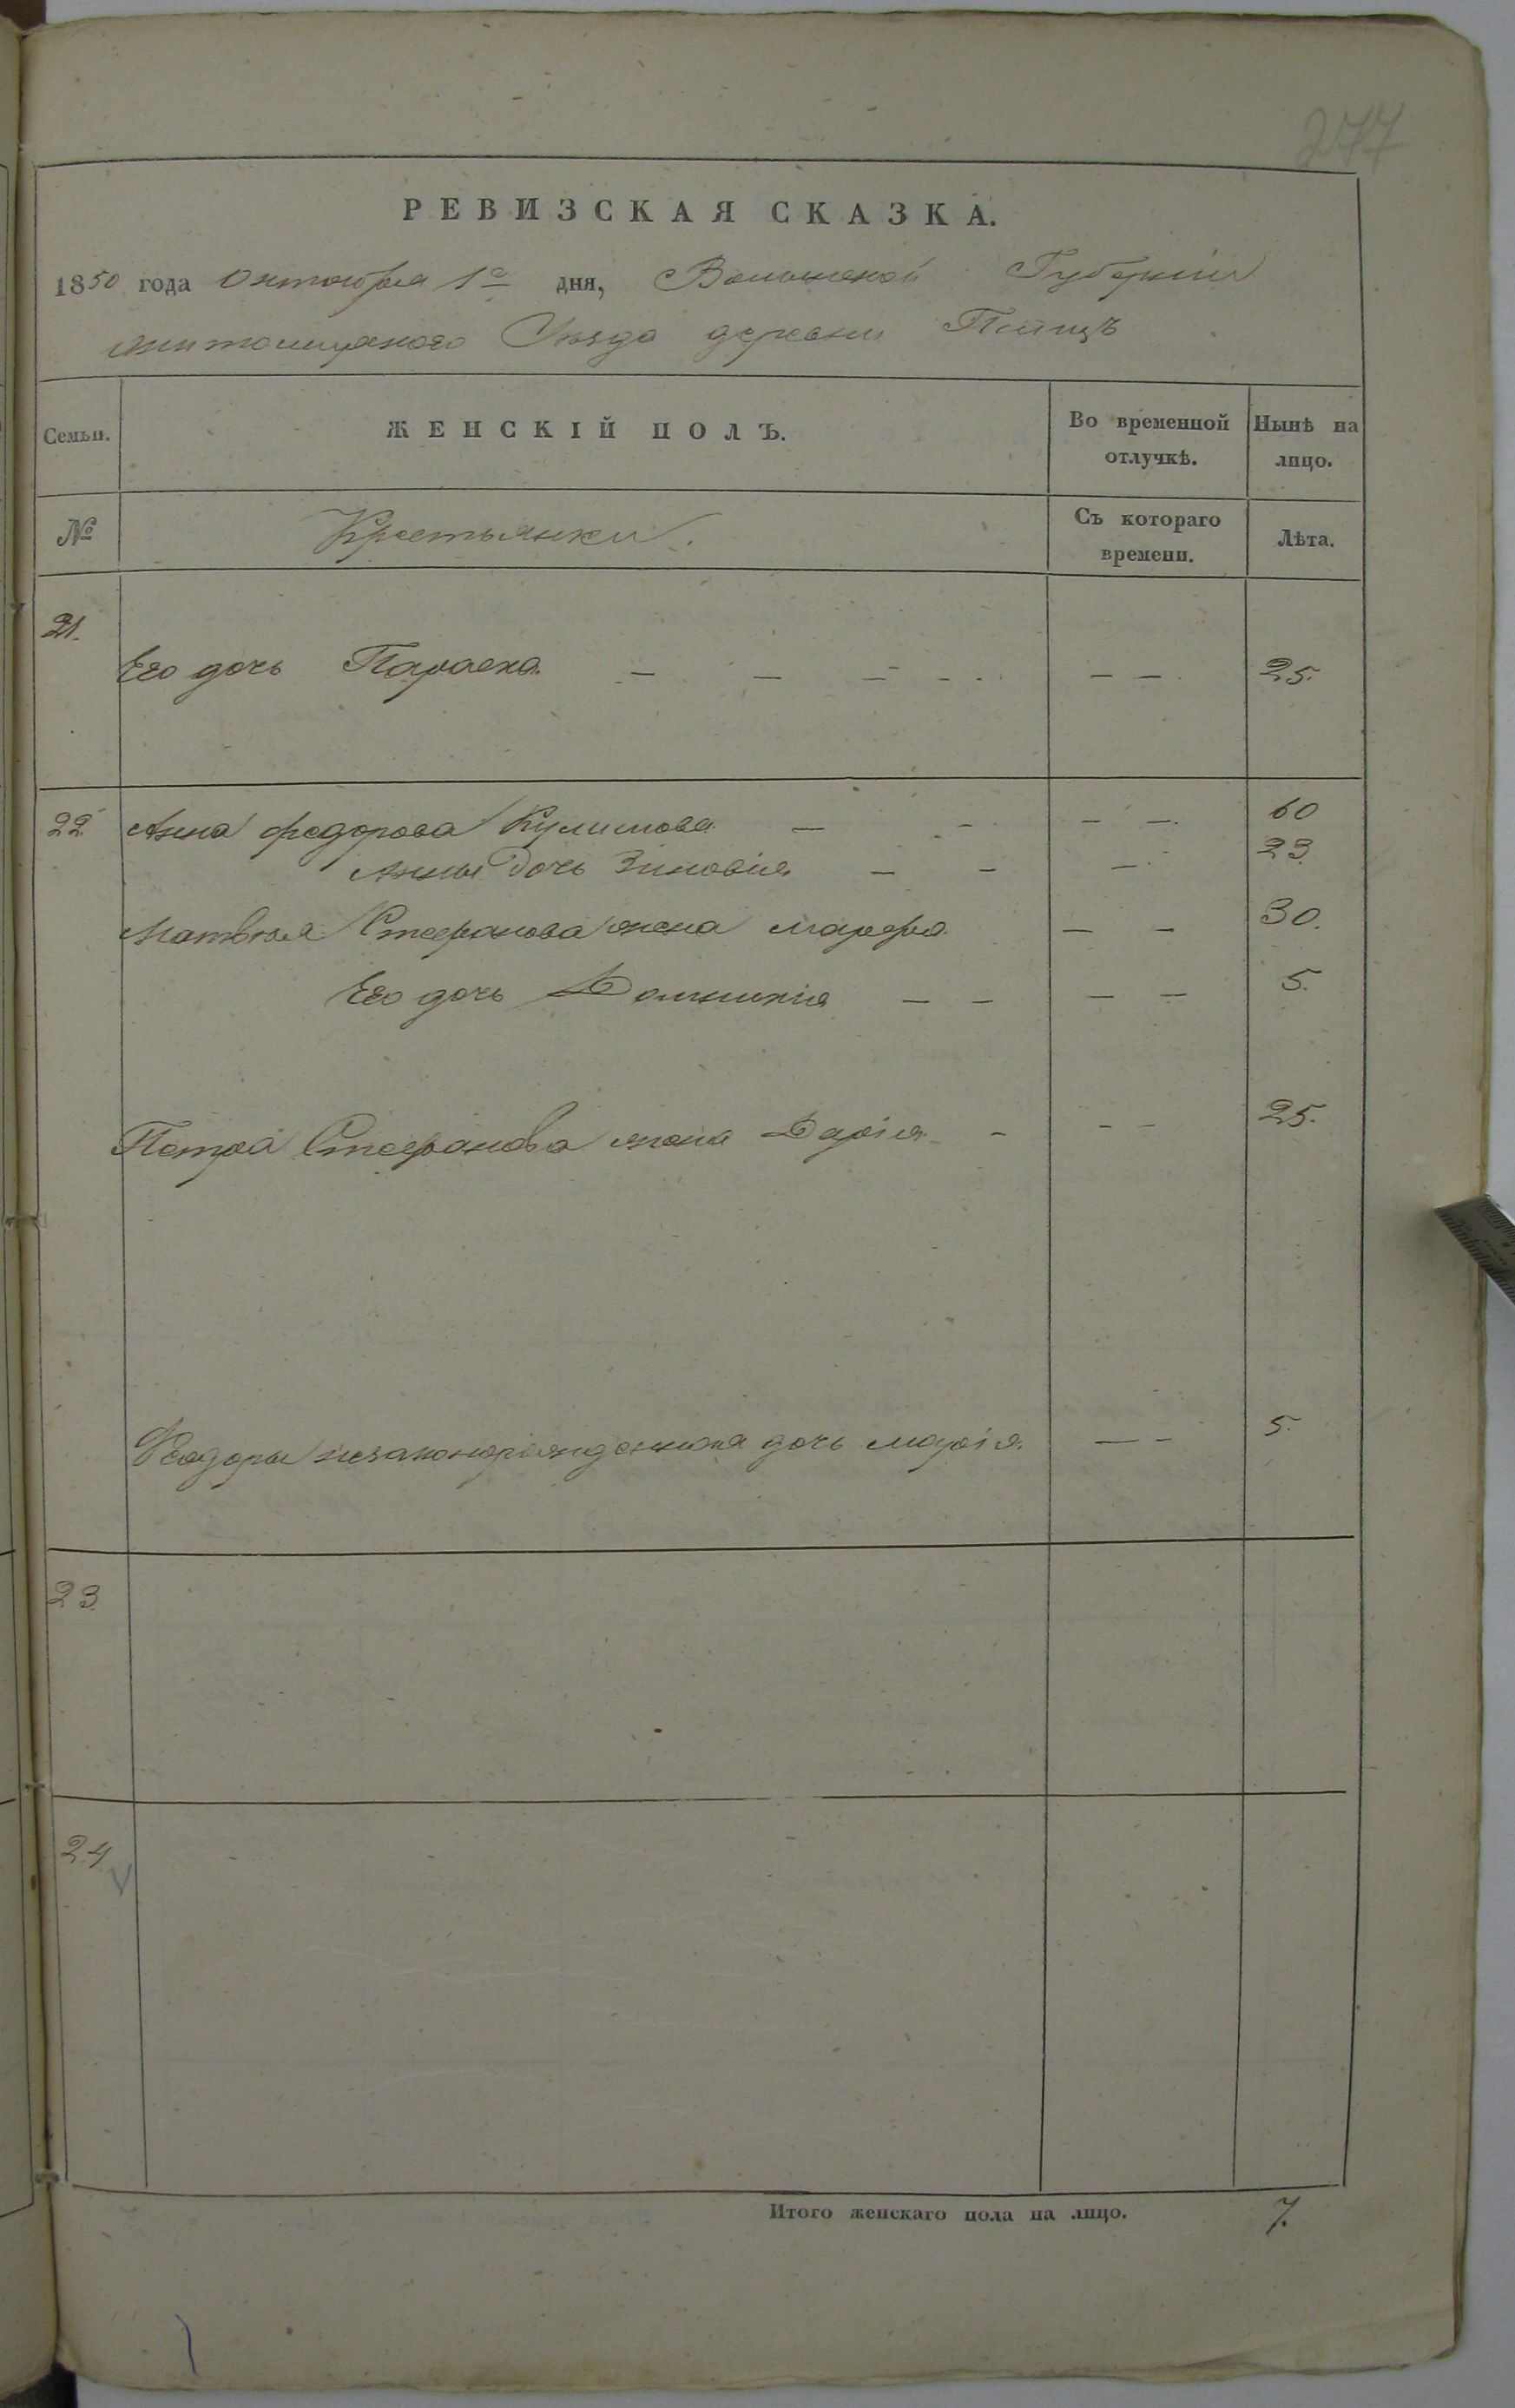 277
РЕВИЗСКАЯ СКАЗКА.
1850 года Октовбря 1го дня, Волынской Губерніи
житомирского Уѣзда деревни
Семьи. ЖЕНСКІЙ ПОЛЪ. Во временной отлучкѣ. Нынѣ на лицо.
№ Крестьянки. Съ котораго времени. Лѣта.
21.
Его дочь Параска. — — — - . . — — . 25.
22. Анна федорова Кулишова — - - —. 60
Анны Дочь Зиновія — - — . 23.
Матвѣя Стефанова жена марфа. — — 30.
Его дочь Домникія — — — — 5.
Петра Стефанова жена Дарія - - - 25.
Феодоры незаконорожденная дочь марія. — - 5.
23.
24.
Итого женскаго пола на лицо. 7.